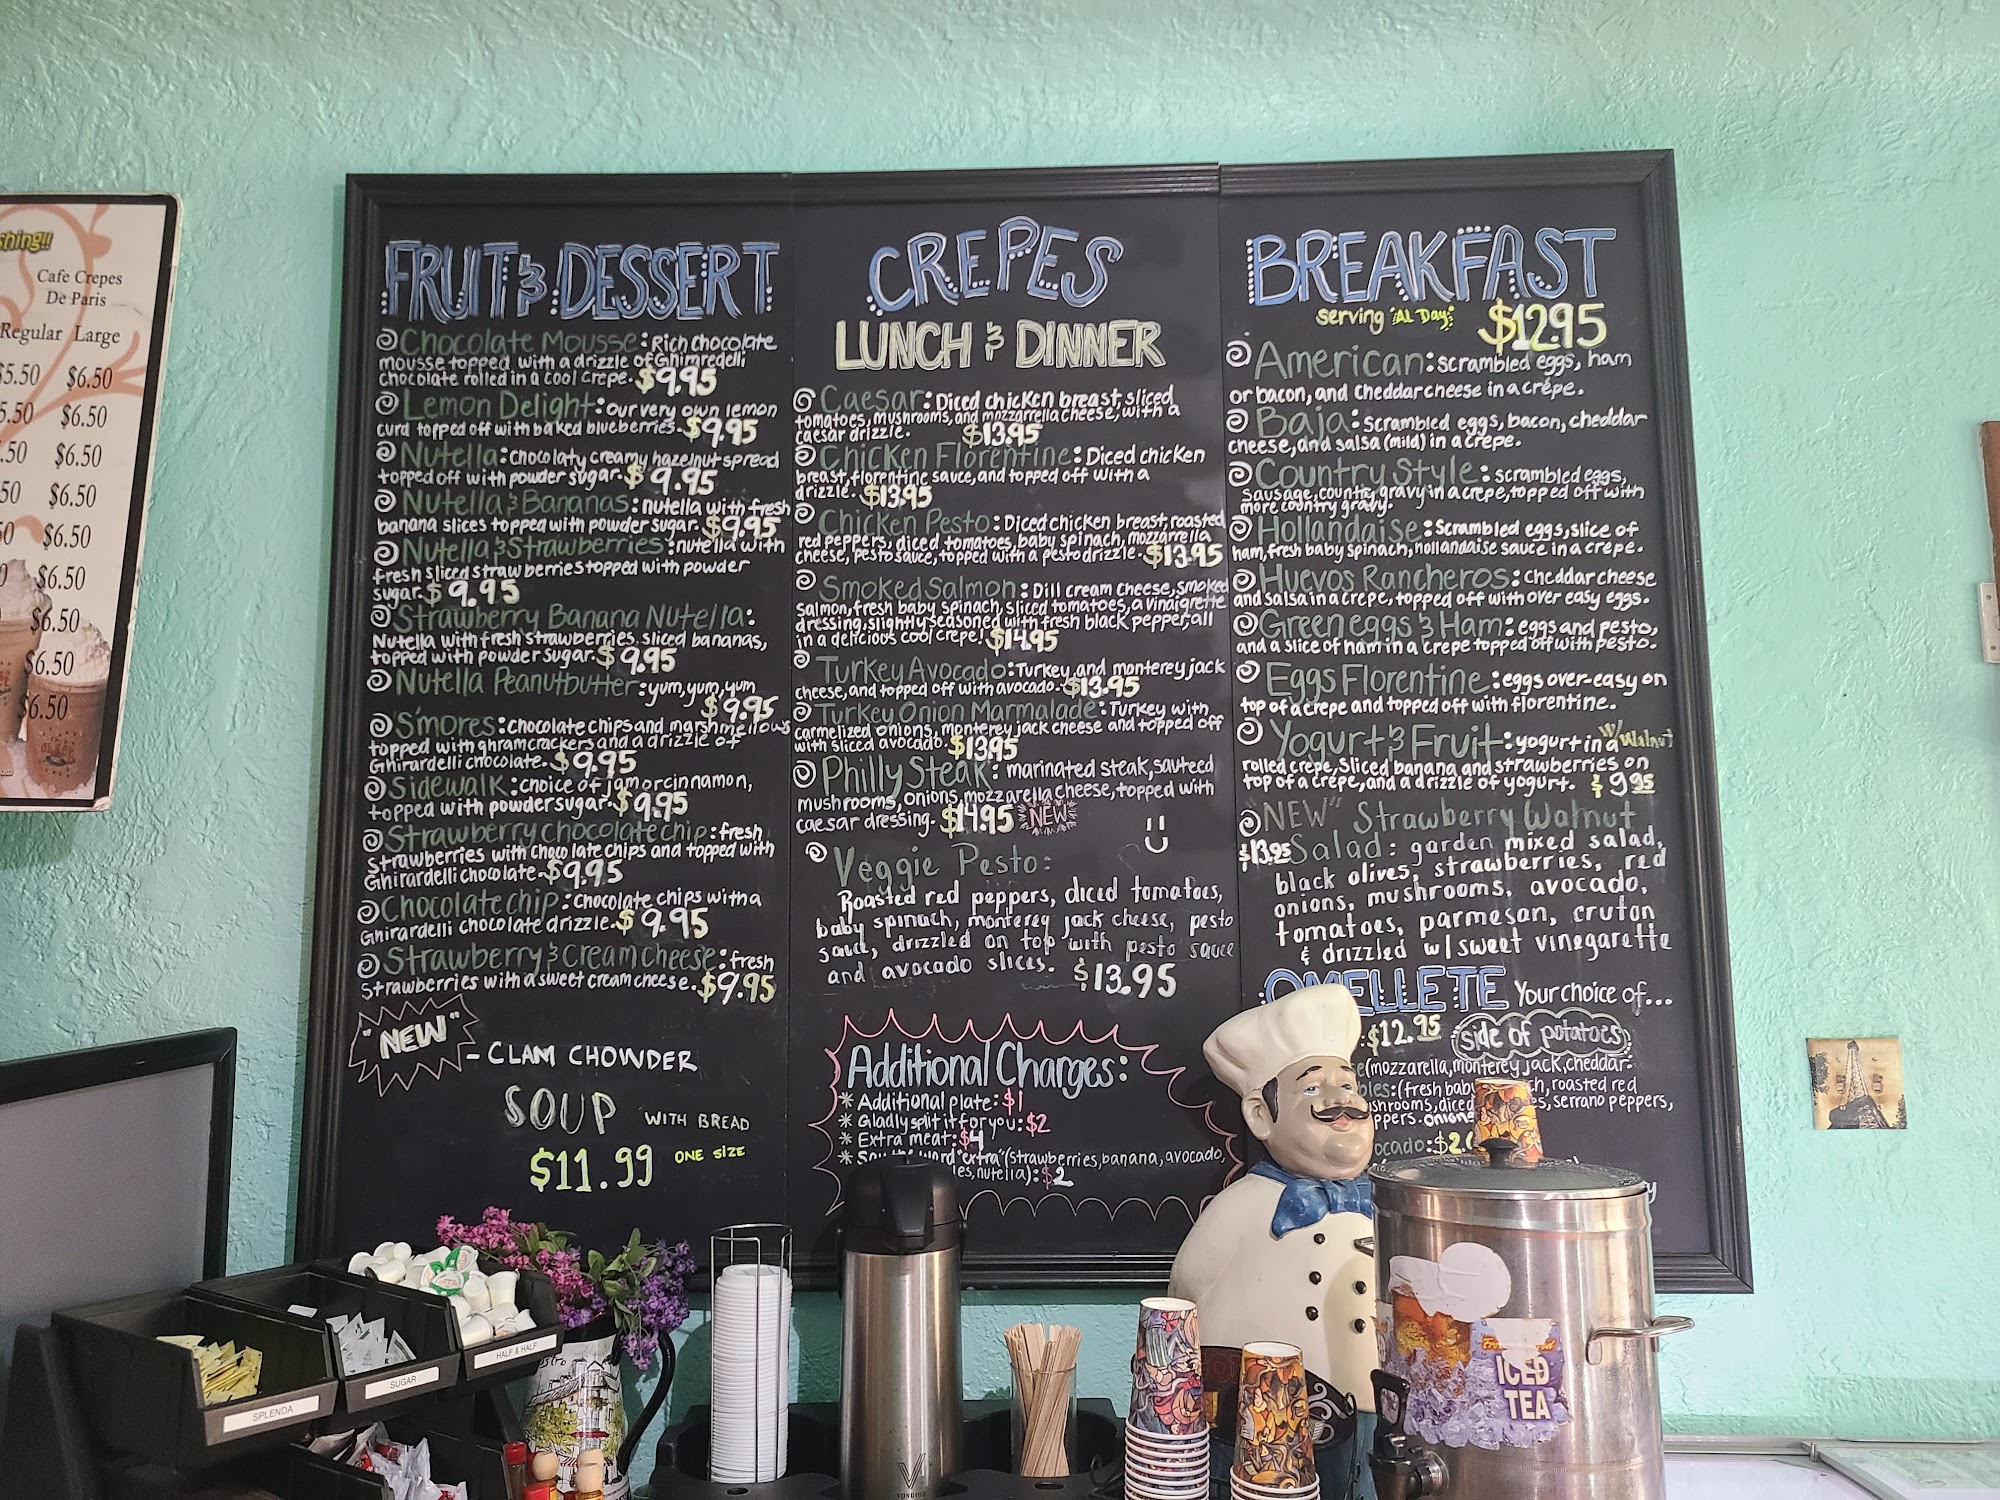 shing!!
Cafe Crepes
De Paris
Regular Large
$5.50 $6.50
5.50 $6.50
.50 $6.50
50 $6.50
0 $6.50
$6.50
$6.50
$6.50
$6.50
FRUIT & DESSERT
Chocolate Mousse: Rich chocolate
mousse topped with a drizzle of Ghiraredelli
chocolate rolled in a cool crepe. $9.95
Lemon Delight: our very own lemon
curd topped off with baked blueberries. $9.95
Nutella: chocolaty creamy hazelnut spread
topped off with powder sugar. $9.95
Nutella & Bananas: nutella with fresh
banana slices topped with powder sugar. $9.95
Nutella & Strawberries: nutella with
fresh sliced strawberries topped with powder
sugar. $9.95
Strawberry Banana Nutella:
Nutella with fresh strawberries, sliced bananas,
topped with powder sugar. $9.95
Nutella Peanutbutter: yum, yum, yum
$9.95
S'mores: chocolate chips and marshmellows
topped with ghramcrackers and a drizzle of
Ghirardelli chocolate. $9.95
Sidewalk: choice of jam or cinnamon,
topped with powder sugar. $9.95
Strawberry chocolate chip: fresh
strawberries with chocolate chips and topped with
Ghirardelli chocolate. $9.95
Chocolate chip: chocolate chips with a
Ghirardelli chocolate drizzle. $9.95
Strawberry & Cream cheese: fresh
strawberries with a sweet cream cheese. $9.95
"NEW"
- CLAM CHOWDER
SOUP WITH BREAD
$11.99 ONE SIZE
CREPES
LUNCH & DINNER
Caesar: Diced chicken breast, sliced
tomatoes, mushrooms, and mozzarrella cheese, with a
caesar drizzle. $13.95
Chicken Florentine: Diced chicken
breast, florentine sauce, and topped off with a
drizzle. $13.95
Chicken Pesto: Diced chicken breast, roasted
red peppers, diced tomatoes, baby spinach, mozzarrella
cheese, pesto sauce, topped with a pesto drizzle. $13.95
Smoked Salmon: Dill cream cheese, smoked
salmon, fresh baby spinach, sliced tomatoes, a vinaigrette
dressing, slightly seasoned with fresh black pepper, all
in a delicious cool crepe! $14.95
Turkey Avocado: Turkey, and monterey jack
cheese, and topped off with avocado. $13.95
Turkey Onion Marmalade: Turkey with
carmelized onions, monterey jack cheese and topped off
with sliced avocado. $13.95
Philly Steak: marinated steak, sauteed
mushrooms, onions, mozzarella cheese, topped with
caesar dressing. $14.95 NEW
Veggie Pesto:
Roasted red peppers, diced tomatoes,
baby spinach, monterey jack cheese, pesto
sauce, drizzled on top with pesto sauce
and avocado slices. $13.95
Additional Charges:
* Additional plate: $1
* Gladly split it for you: $2
* Extra meat: $4
* Say the word "extra" (strawberries, banana, avocado,
les, nutella): $2
BREAKFAST
serving AL Day $12.95
American: scrambled eggs, ham
or bacon, and cheddar cheese in a crépe.
Baja: scrambled eggs, bacon, cheddar
cheese, and salsa (mild) in a crepe.
Country Style: scrambled eggs,
sausage, country gravy in a crepe, topped off with
more country gravy.
Hollandaise: Scrambled eggs, slice of
ham, fresh baby spinach, hollandaise sauce in a crepe.
Huevos Rancheros: cheddar cheese
and salsa in a crepe, topped off with over easy eggs.
Green eggs & Ham: eggs and pesto,
and a slice of ham in a crepe topped off with pesto.
Eggs Florentine: eggs over-easy on
top of a crepe and topped off with florentine.
Yogurt & Fruit: yogurt in a w/ Walnut
rolled crepe, sliced banana and strawberries on
top of a crépe, and a drizzle of yogurt. $9.95
"NEW" Strawberry Walnut
$13.95 Salad: garden mixed salad,
black olives, strawberries, red
onions, mushrooms, avocado,
tomatoes, parmesan, cruton
& drizzled w/ sweet vinegarette
OMELLETE Your choice of...
: $12.95 side of potatoes
e (mozzarella, monterey jack, cheddar.
bles: (fresh baby ch, roasted red
shrooms, diced es, serrano peppers,
ppers. onions
ocado: $2.
y
SPLENDA
SUGAR
HALF & HALF
ICED
TEA